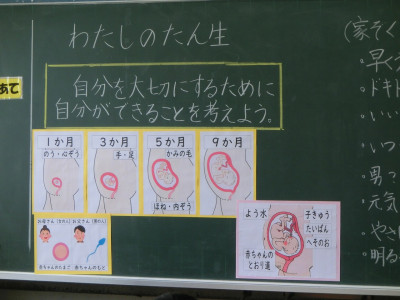 わたしのたん生
あて
自分を大切にするために
自分ができることを考えよう。
1か月
のう・心ぞう
3か月
手・足
5か月
かみの毛
ほね・内ぞう
9か月
お母さん(女の人)
お父さん(男の人)
赤ちゃんのたまご
赤ちゃんのもと
よう水
子きゅう
たいばん
へそのお
赤ちゃんの
とおり道
(家ぞく
・早く
・ドキド
・いい
・いつ
・男っ
・元気
・やさ
・明る